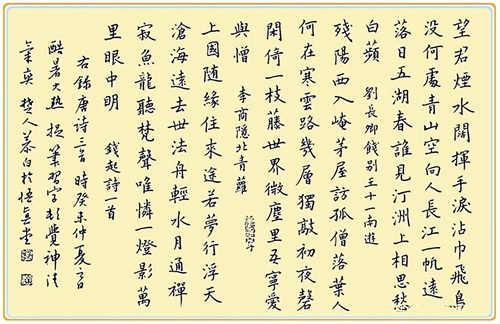 望君煙水闊揮手淚沾巾飛鳥
没何處青山空向人長江一帆遠
落日五湖春誰見汀洲上相思愁
白蘋 劉長卿餞別王十一南遊
殘陽西入崦茅屋訪孤僧落葉人
何在寒雲路幾層獨敲初夜磬
閑倚一枝藤世界微塵里吾寧愛
與憎 李商隱北青蘿
上國隨緣住來途若夢行浮天
滄海遠去世法舟輕水月通禪
寂魚龍聽梵聲唯憐一燈影萬
里眼中明 錢起詩一首
右錄唐詩三首 時癸未仲夏
酷暑大熱 習字 覺神清
氣爽 人慕白於悟堂